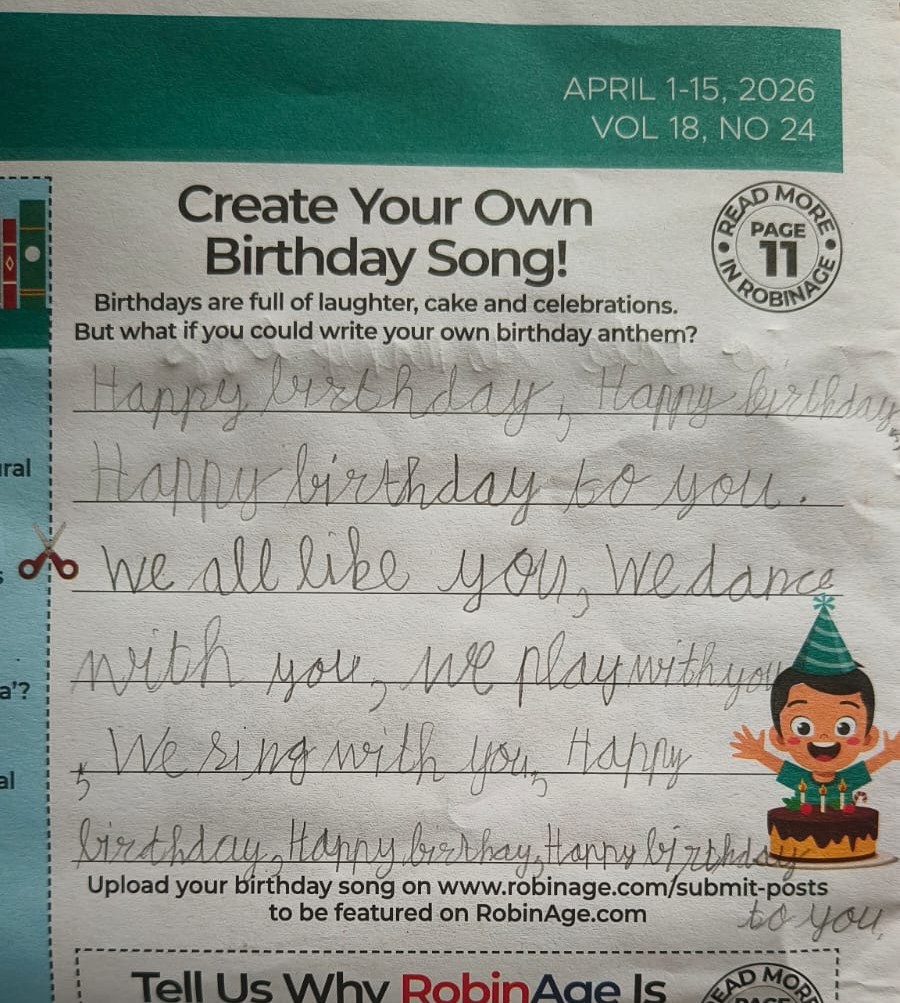 APRIL 1-15, 2026
VOL 18, NO 24
Create Your Own
Birthday Song!
READ MORE
PAGE
11
IN ROBINAGE
Birthdays are full of laughter, cake and celebrations.
But what if you could write your own birthday anthem?
Happy birthday, Happy birthday,
Happy birthday to you.
ral
We all like you, We dance
with you, we play with you
a'?
, We sing with you, Happy
al
birthday, Happy birthay, Happy birthday
to you,
Upload your birthday song on www.robinage.com/submit-posts
to be featured on RobinAge.com
Tell Us Why RobinAge Is
EAD MOR